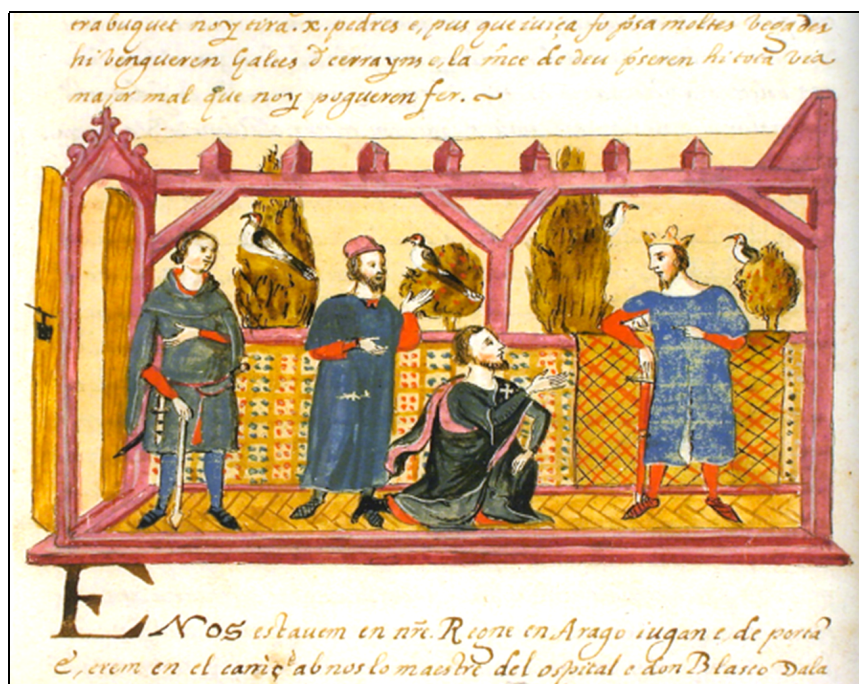 trabuquet noy tira .x. pedres e, pus que iuiça fo p̃sa moltes vegades
hi vengueren Galees d̃ cerrayns e, la m̃ce de deu p̃seren hi tota via
major mal que noy pogueren fer. ~
E Nos estavem en nr̃e. Regne en Arago iugan e, de porta
E, erem en el camiç e ab nos lo maestre del ospital e don Blasco Dala